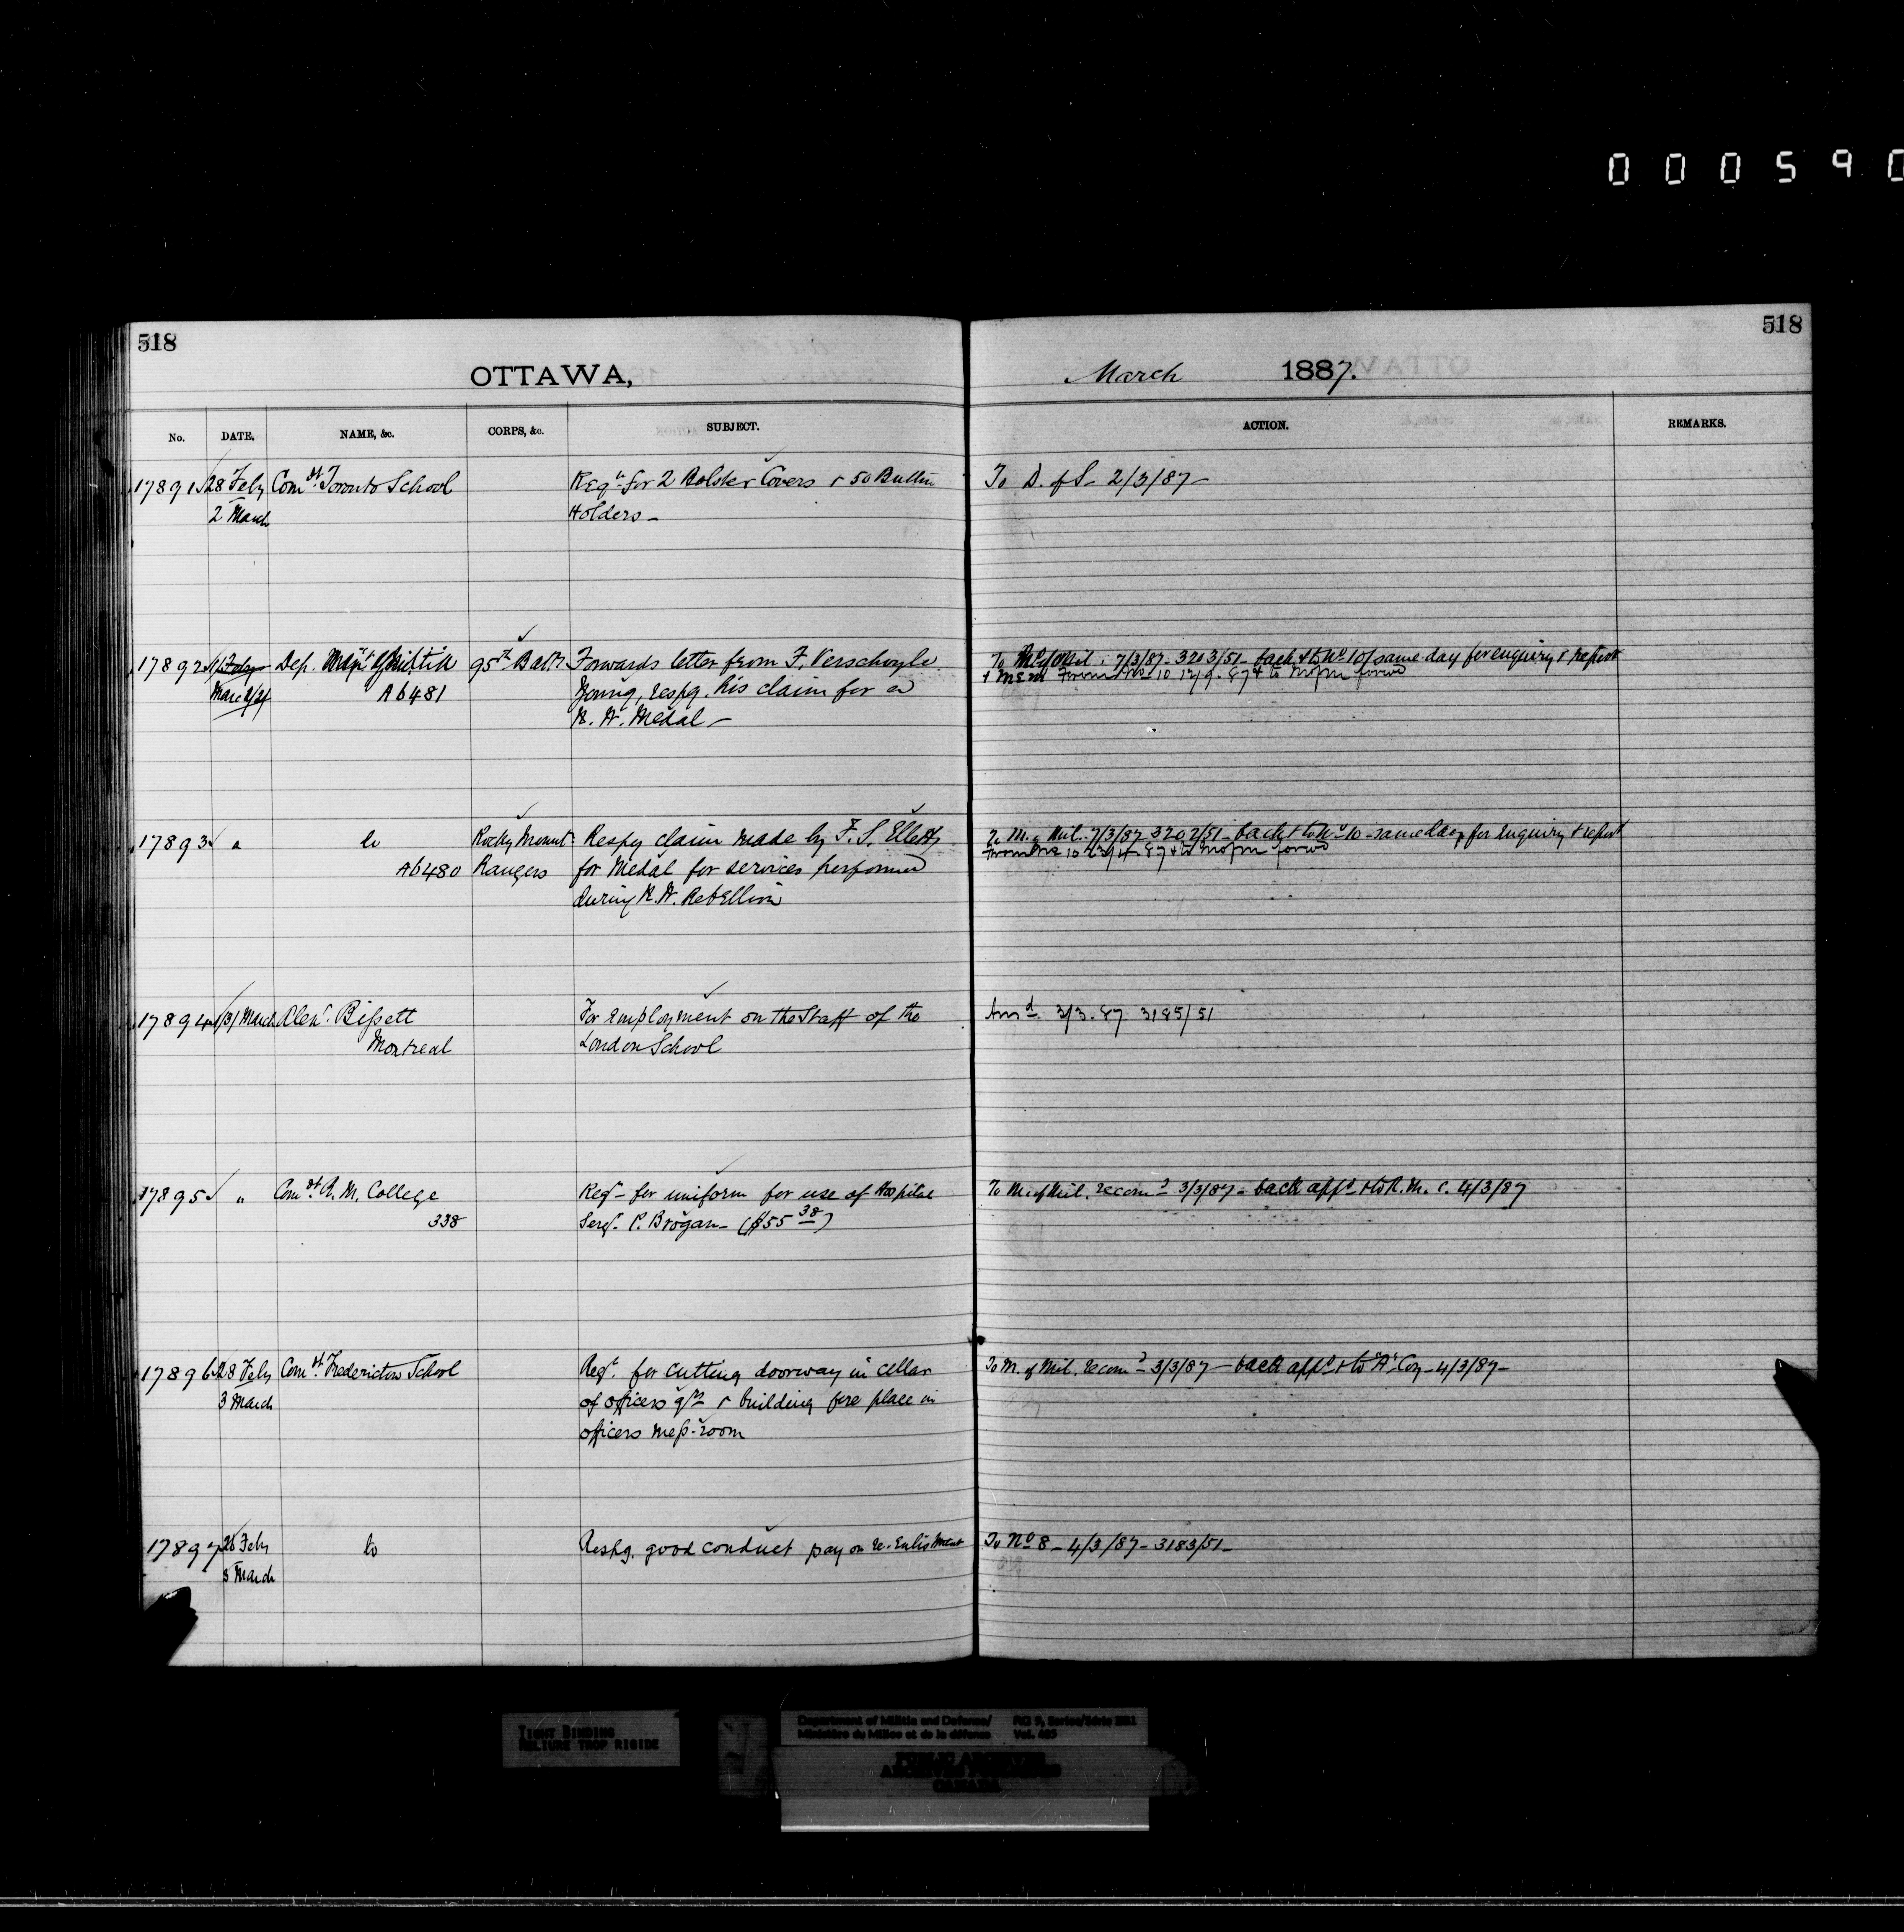 000590
518
518
OTTAWA,
March 1887.
No. DATE. NAME, &c. CORPS, &c. SUBJECT. ACTION. REMARKS.
17891 28 Feby Comdt. Toronto School Reqn. for 2 Bolster Covers & 50 Button To D. of S. 2/3/87-
2 March Holders-
17892 Dep. Min. of Militia 95th Batn. Forwards letter from F. Verschoyle To M. of Mil. 7/3/87-3203/51- back & to No. 10 same day for enquiry & report
A6481 Young, respg. his claim for a & mem From No 10 forwd
N.W. Medal-
17893 " Do Rocky Mount- Respg claim made by F. S. Elletts To M. Mil. 7/3/87 3202/51- back & to No 10-same day for enquiry & report
A6480 Rangers for Medal for services performed From No 10 forwd
during N.W. Rebellion
17894 March Alexr. Bissett For employment on the Staff of the Ansd. 3/3.87 3185/51
Montreal London School
17895 " Comdt. R.M. College Reqn- for uniform for use of Hospital To M. of Mil. recomd 3/3/87- back appd & to R.M.C. 4/3/87
338 Sergt. P. Brogan- ($55 38)
17896 28 Feby Comdt. Fredericton School Reqn. for cutting doorway in cellar To M. of Mil. recomd 3/3/87- back appd & to "A" Coy- 4/3/87-
3 March of officers qrs & building fire place in
officers mess-room
17897 Feby Do Respg. good conduct pay on re-Enlistment To No 8- 4/3/87- 3183/51-
3 March
TIGHT BINDING
RELIURE TROP RIGIDE
Department of Militia and Defence/ RG 9, Series/Série IIB1
Ministère du Milice et de la défense Vol.
PUBLIC ARCHIVES
ARCHIVES PUBLIQUES
CANADA